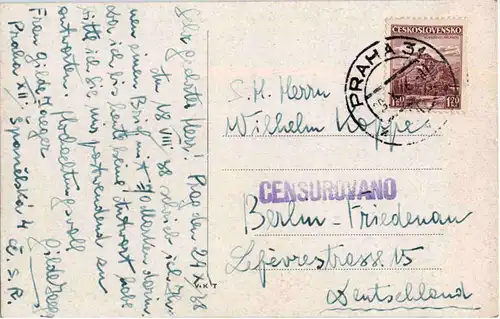 Sehr geehrter Herr! Prag den 24 X. 38
Am 18 VIII 38 schrieb ich Ihnen
einen Brief mit Marken darin,
da ich bis heute keine Antwort habe
bitte ich Sie mir postwendend zu
antworten. Hochachtungsvoll
Frau Gilde
Praha XII. Spanělská 4
Č. S. R.
ČESKOSLOVENSKO
1.20 1.20
PRAHA 31
S. H. Herrn
Wilhelm Koppe
CENSUROVÁNO
Berlin-Friedenau
Lefèvrestrasse 15
Deutschland
V.K.T